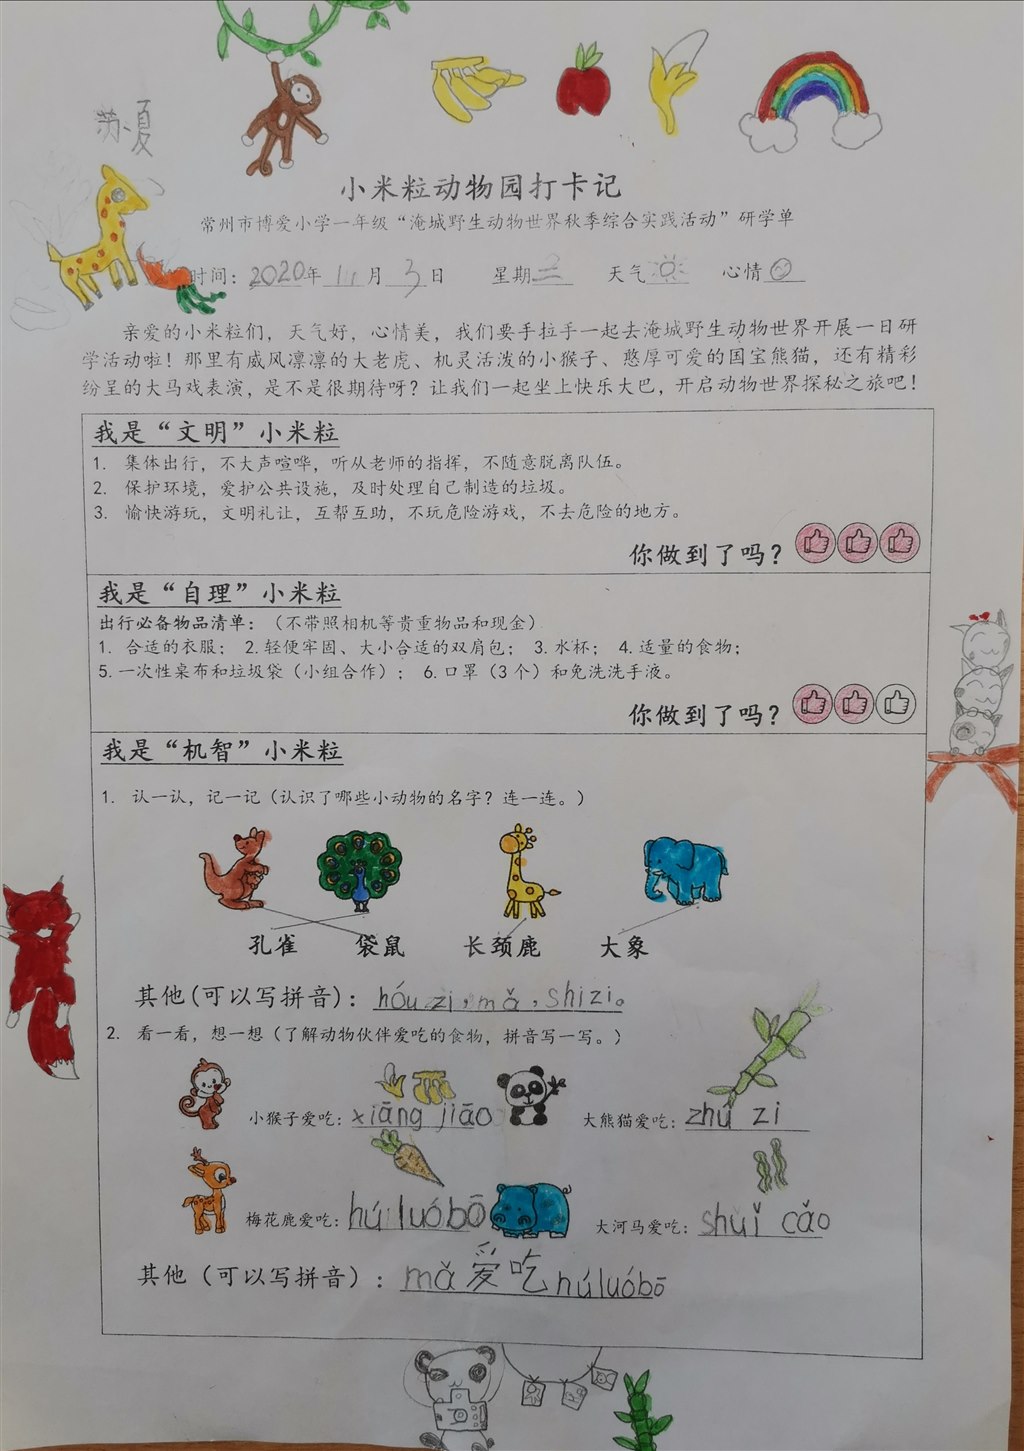 苏夏
小米粒动物园打卡记
常州市博爱小学一年级“淹城野生动物世界秋季综合实践活动”研学单
时间：2020年 11 月 3 日 星期三 天气 心情
亲爱的小米粒们，天气好，心情美，我们要手拉手一起去淹城野生动物世界开展一日研
学活动啦！那里有威风凛凛的大老虎、机灵活泼的小猴子、憨厚可爱的国宝熊猫，还有精彩
纷呈的大马戏表演，是不是很期待呀？让我们一起坐上快乐大巴，开启动物世界探秘之旅吧！
我是“文明”小米粒
1. 集体出行，不大声喧哗，听从老师的指挥，不随意脱离队伍。
2. 保护环境，爱护公共设施，及时处理自己制造的垃圾。
3. 愉快游玩，文明礼让，互帮互助，不玩危险游戏，不去危险的地方。
你做到了吗？
我是“自理”小米粒
出行必备物品清单：（不带照相机等贵重物品和现金）
1. 合适的衣服； 2.轻便牢固、大小合适的双肩包； 3.水杯； 4.适量的食物；
5.一次性桌布和垃圾袋（小组合作）； 6.口罩（3个）和免洗洗手液。
你做到了吗？
我是“机智”小米粒
1. 认一认，记一记（认识了哪些小动物的名字？连一连。）
孔雀 袋鼠 长颈鹿 大象
其他(可以写拼音)：hóu zi，mǎ，shizi。
2. 看一看，想一想（了解动物伙伴爱吃的食物，拼音写一写。）
小猴子爱吃：xiāng jiāo 大熊猫爱吃：zhú zi
梅花鹿爱吃：hú luóbō 大河马爱吃：shuǐ cǎo
其他（可以写拼音）：mǎ爱吃húluóbō